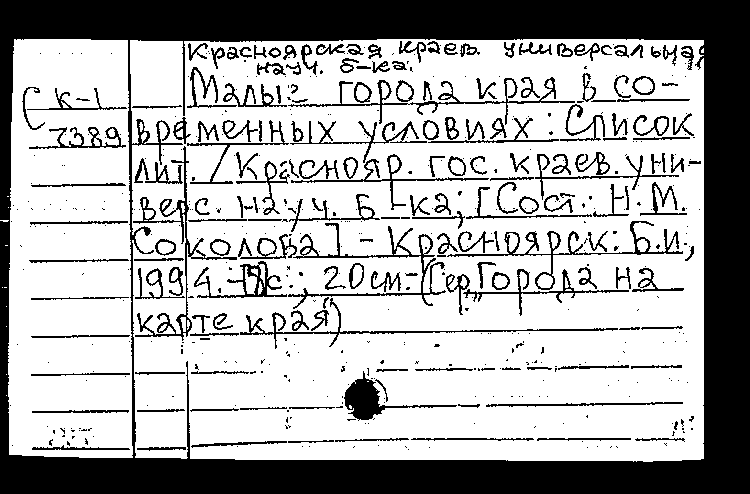 Красноярская краев. универсальная
науч. б-ка.
Малые города края в со-
К-1
7389 временных условиях: Список
лит. / Краснояр. гос. краев. уни-
верс. науч. б-ка; [Сост.: Н.М.
Соколова]. - Красноярск: Б.и.,
1994. - с.; 20 см. - (Сер. "Города на
карте края")